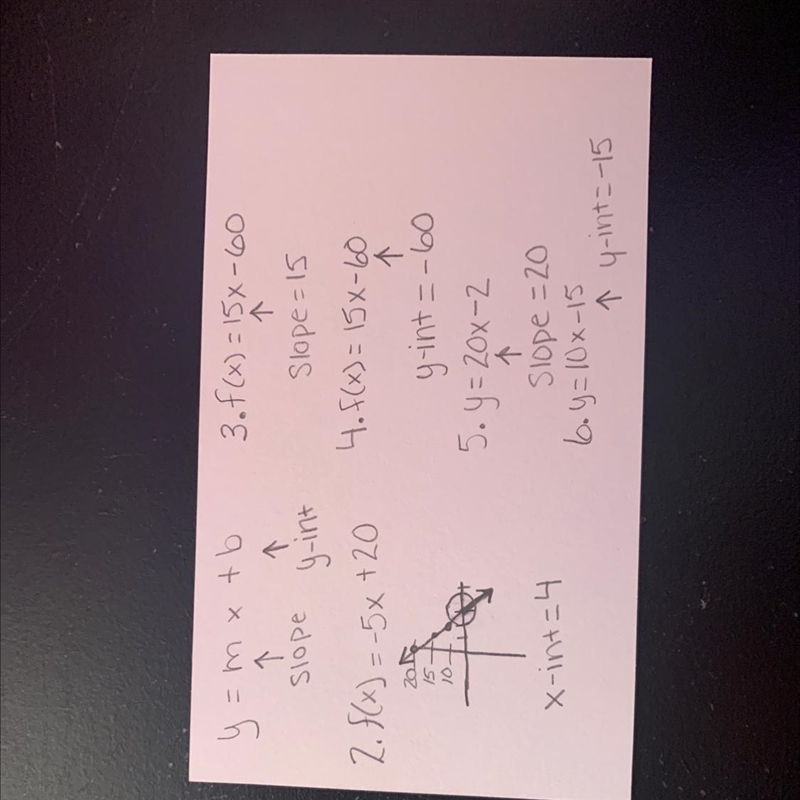 y = m x + b
↑ ↑
slope y-int
2. f(x) = -5x + 20
20
15
10
x-int = 4
3. f(x) = 15x - 60
↑
slope = 15
4. f(x) = 15x - 60
↑
y-int = -60
5. y = 20x - 2
↑
slope = 20
6. y = 10x - 15
↑ y-int = -15